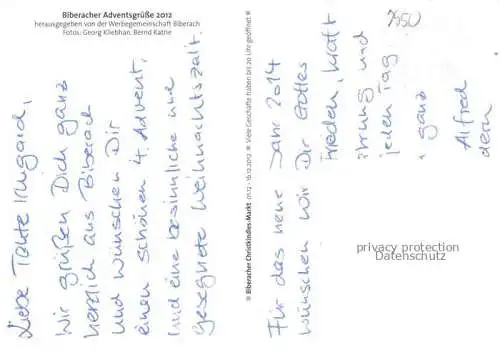 Biberacher Adventsgrüße 2012
herausgegeben von der Werbegemeinschaft Biberach
Fotos: Georg Kliebhan, Bernd Katne
Liebe Tante Irmgard,
Wir grüßen Dich ganz
herzlich aus Biberach
und wünschen Dir
einen schönen 4. Advent,
und eine besinnliche und
gesegnete Weihnachtszeit.
Biberacher Christkindles-Markt 01.12.-16.12.2012 Viele Geschäfte haben bis 20 Uhr geöffnet
Für das neue Jahr 2014
wünschen wir Dir Gottes
Frieden, Kraft
und
jeden Tag
ganz
Alfred
dern
7950
privacy protection
Datenschutz